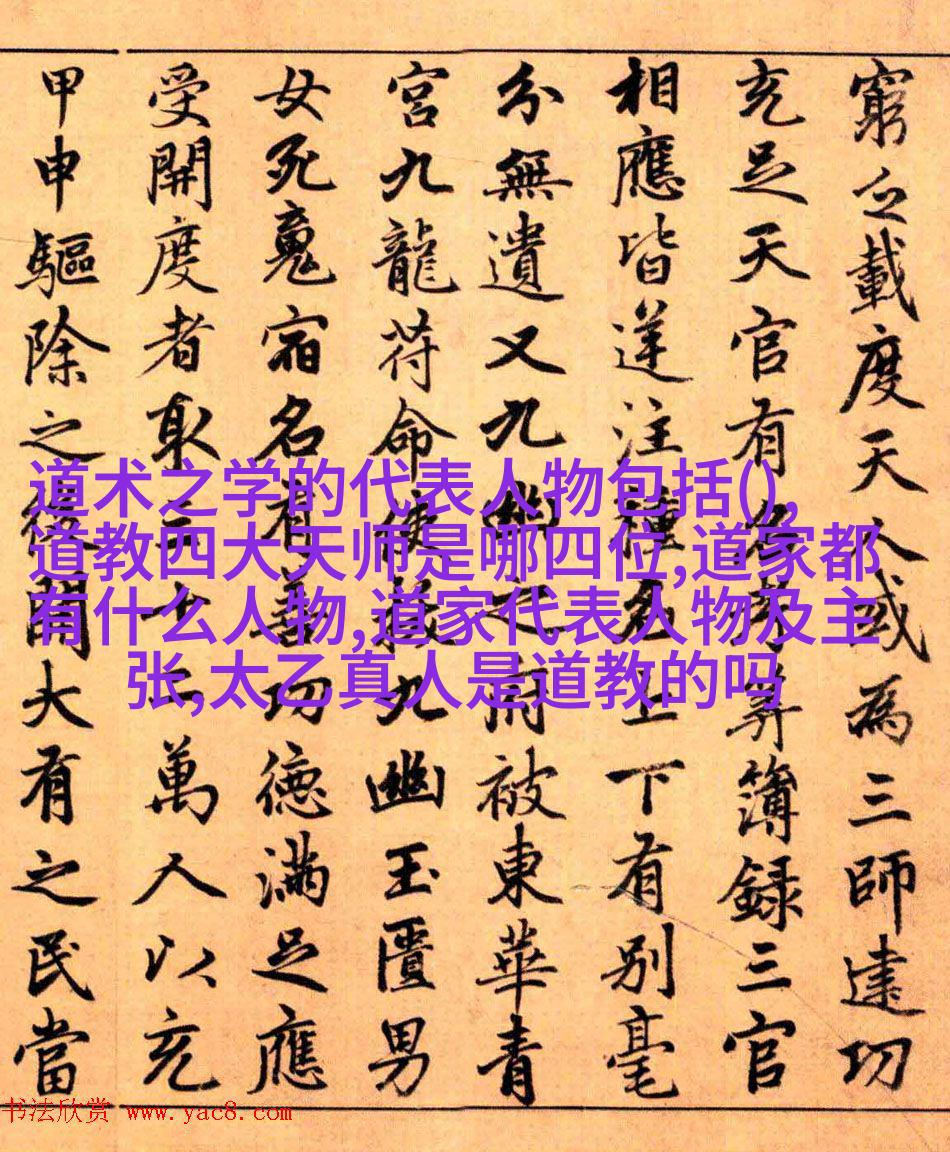 窮之載度天人或為三師建功
充足天官有名簿録三官
相應皆逆注種名上下有別毫
分無遺又九幽之府被東華青
宮九龍符命使拔九幽玉匱男
女死魂宿名有善功德滿足應
受開度者取三十一萬人以充
甲申驅除之後開大有之民當
道术之学的代表人物包括(),
道教四大天师是哪四位,道家都
有什么人物,道家代表人物及主
张,太乙真人是道教的吗
书法欣赏 www.yac8.com